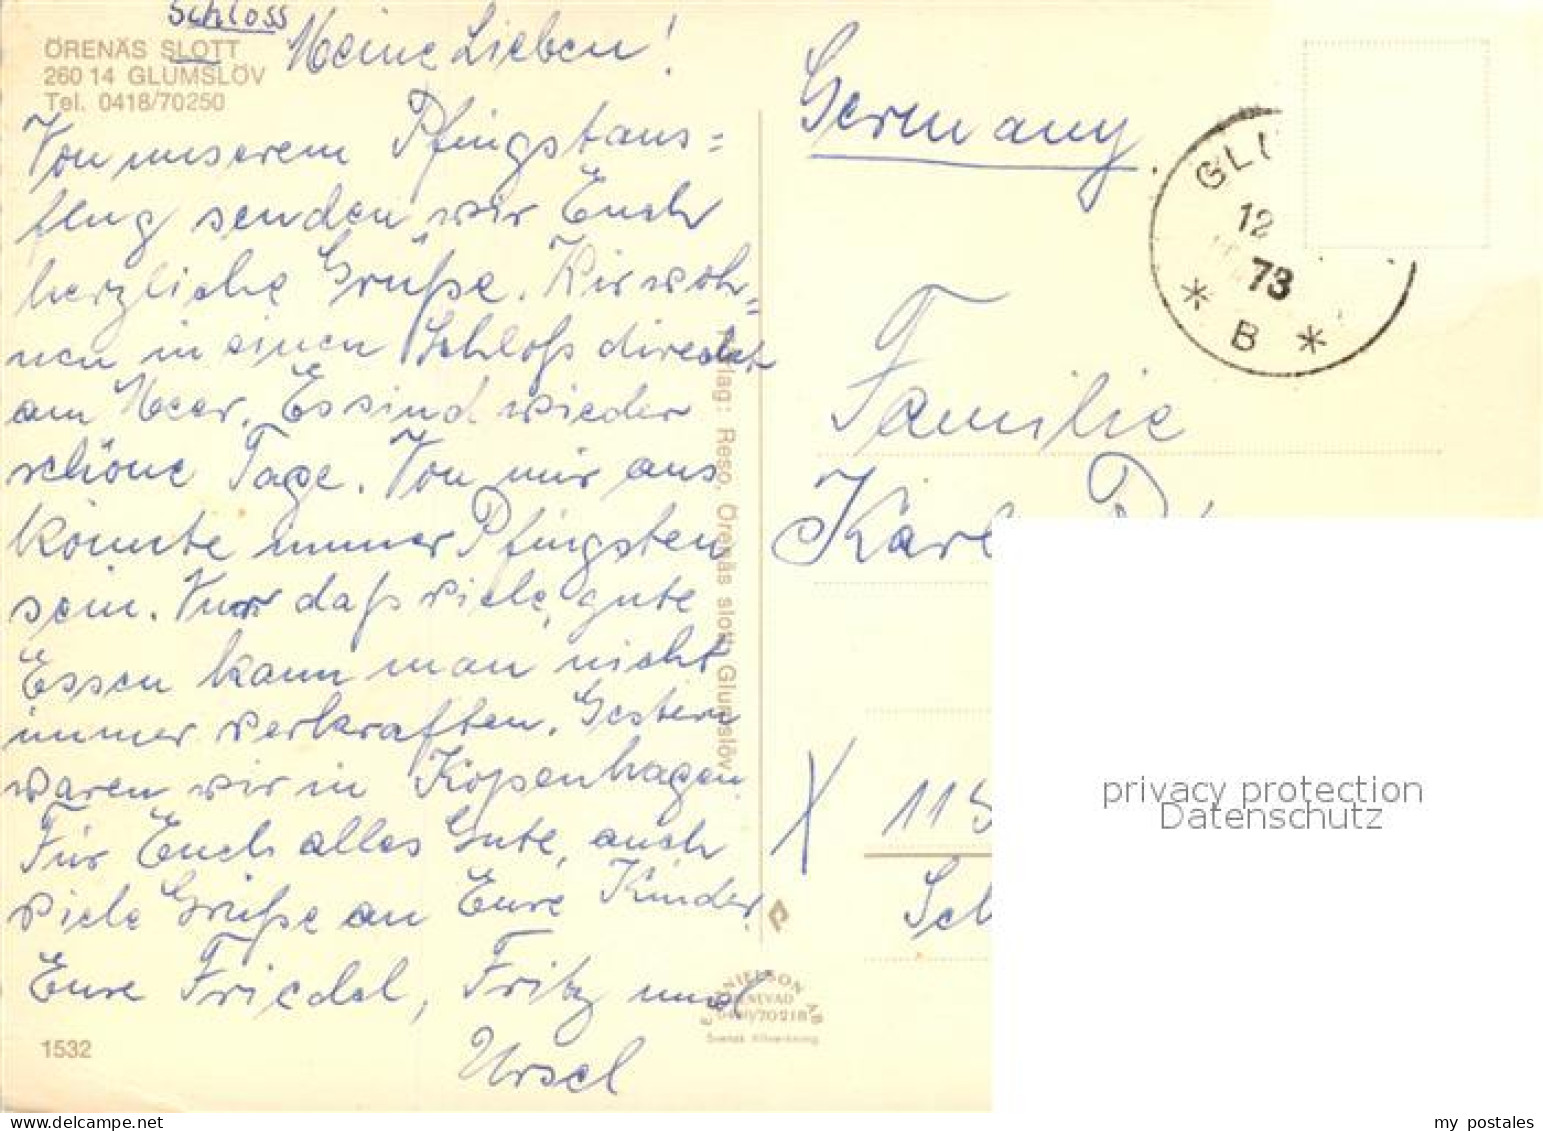 Schloss
ÖRENÄS SLOTT
260 14 GLUMSLÖV
Tel. 0418/70250
Meine Lieben!
Von unserem Pfingstaus=
flug senden wir Euch
herzliche Grüße. Wir woh=
nen in einen Schloß direckt
am Meer. Es sind wieder
schöne Tage. Von mir aus
könnte immer Pfingsten
sein. Nur daß viele, gute
Essen kann man nicht
immer verkraften. Gestern
waren wir in Kopenhagen
Für Euch alles Gute, auch
viele Grüße an Eure Kinder.
Eure Friedel, Fritz und
Ursel
1532
Verlag: Reso, Örenäs slott, Glumslöv
DANIELSON AB
70218
Germany.
GLU
12
73
* B *
Familie
Karl
X 115
Sch
privacy protection
Datenschutz
my postales